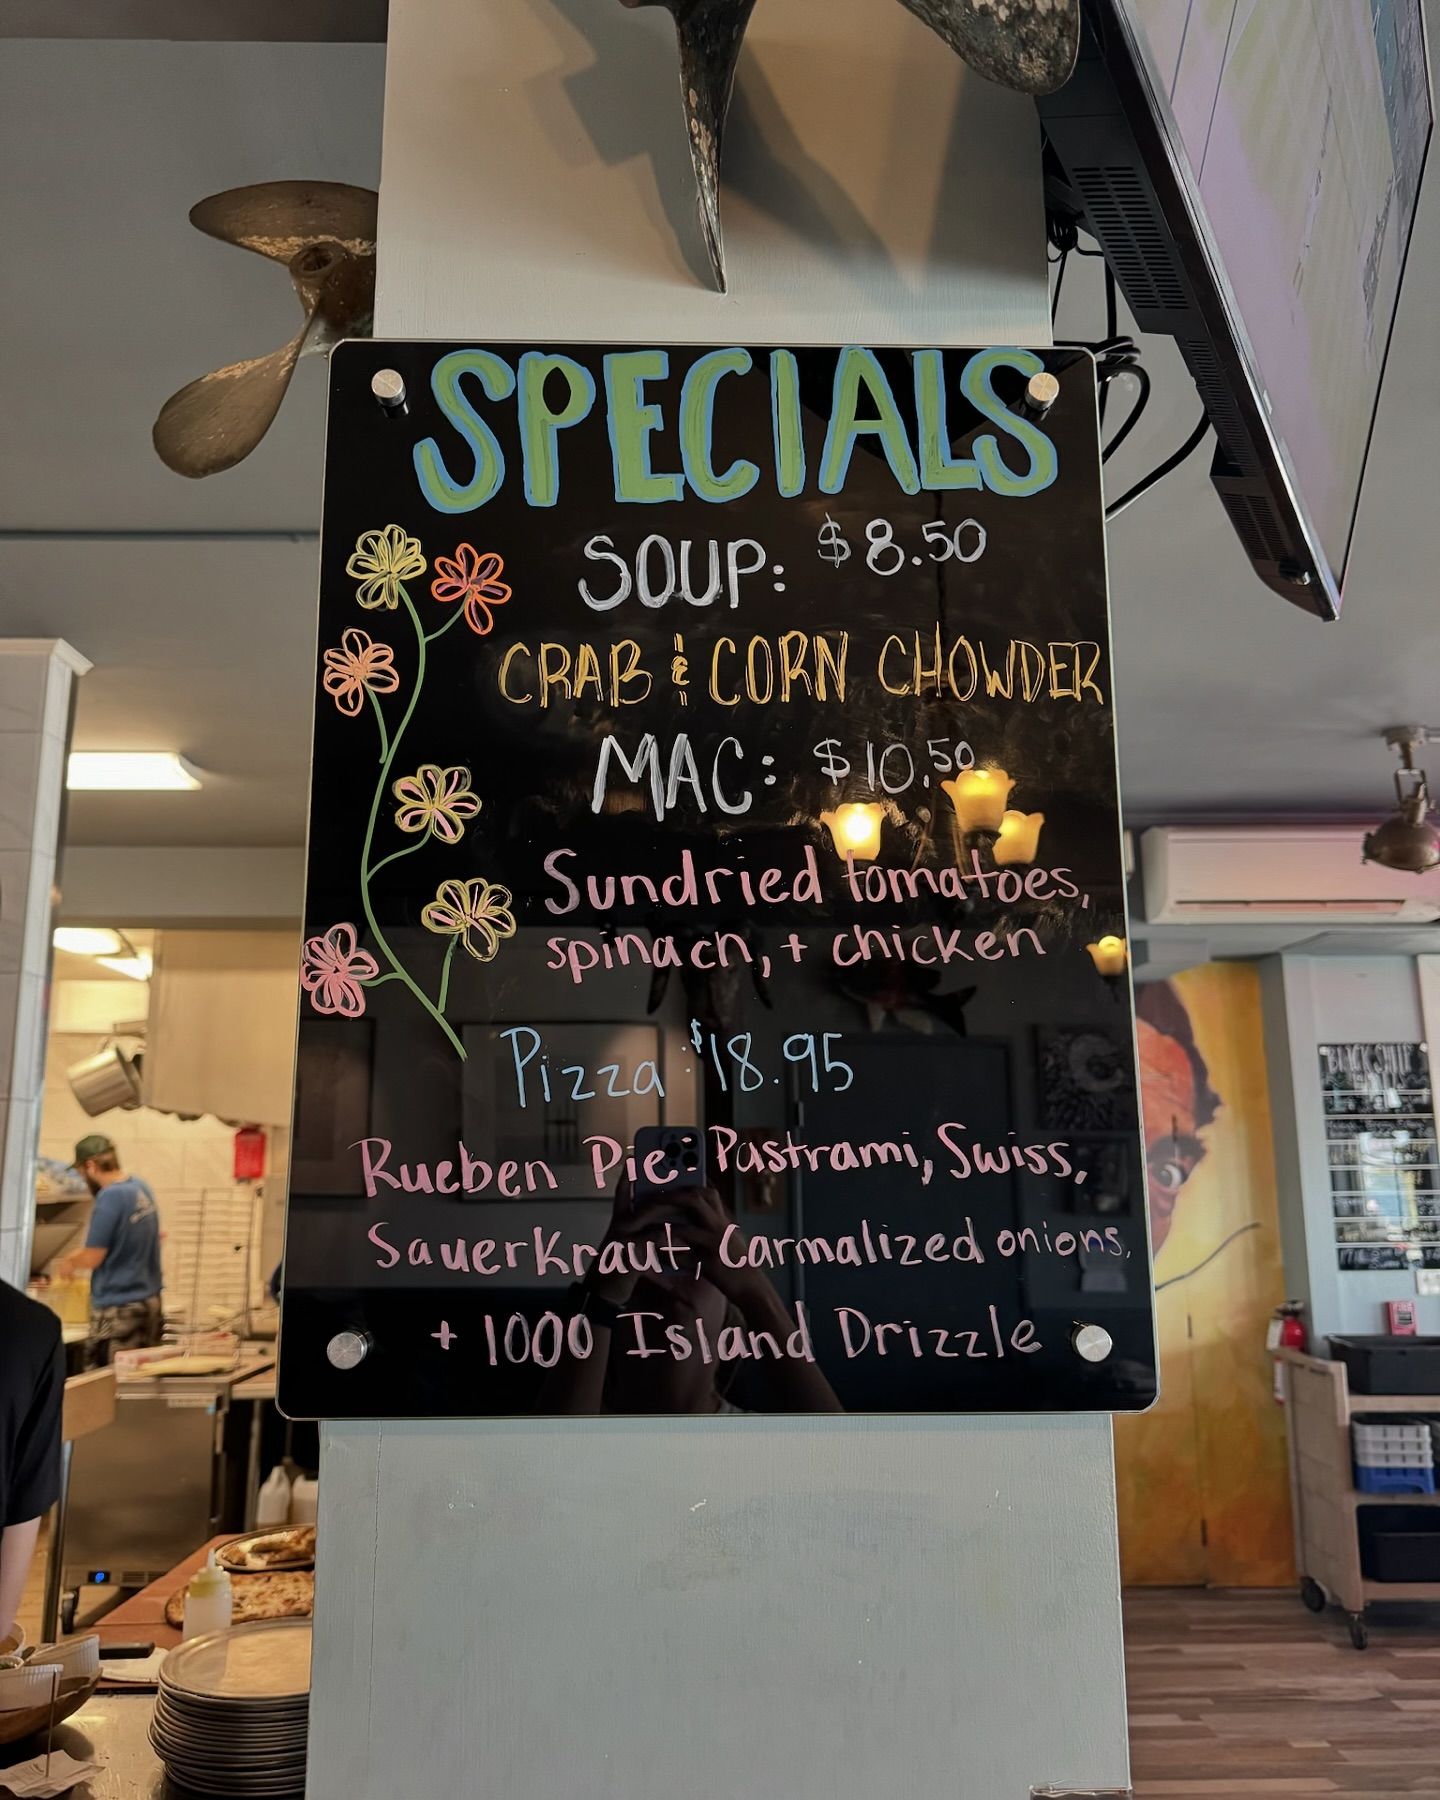 SPECIALS
SOUP: $8.50
CRAB & CORN CHOWDER
MAC: $10.50
Sundried tomatoes,
spinach, + chicken
Pizza: $18.95
Rueben Pie: Pastrami, Swiss,
Sauerkraut, Carmalized onions,
+ 1000 Island Drizzle